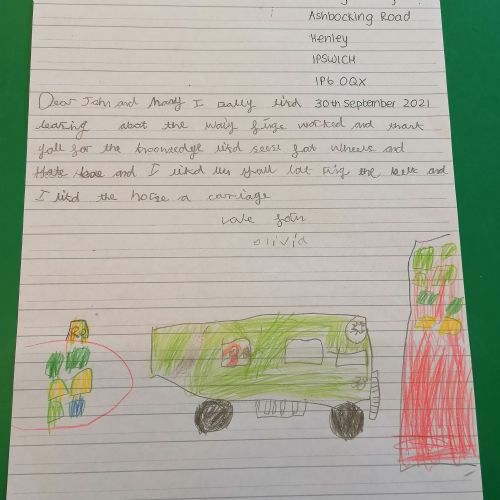 Ashbocking Road
Henley
IPSWICH
IP6 0QX
Dear John and Mary I really likd 30th September 2021
learing abot the waiy fings worked and thank
you for the knowledge likd seest fat wheels and
and I likd us shall ring the bell and
I likd the horse a carriage
love from
olivia